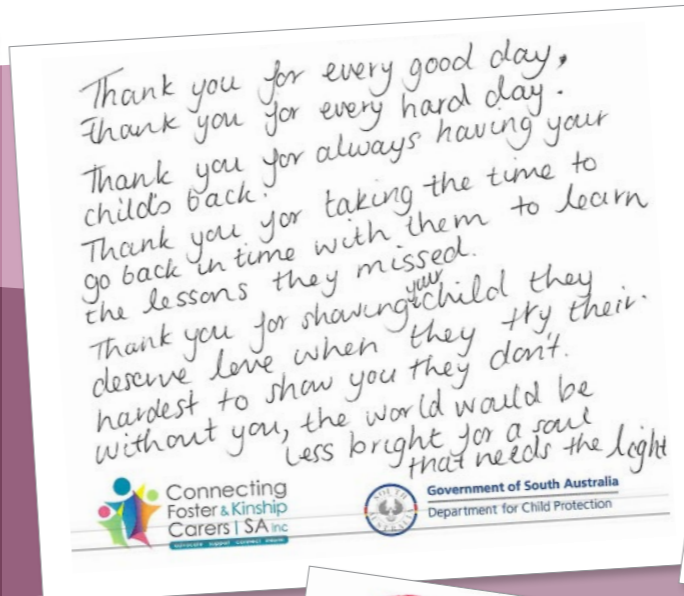 Thank you for every good day,
Thank you for every hard day.
Thank you for always having your
child's back.
Thank you for taking the time to
go back in time with them to learn
the lessons they missed.
Thank you for showing your child they
deserve love when they try their
hardest to show you they don't.
without you, the world would be
less bright for a soul
that needs the light
Connecting
Foster & Kinship
Carers | SA Inc
Government of South Australia
Department for Child Protection